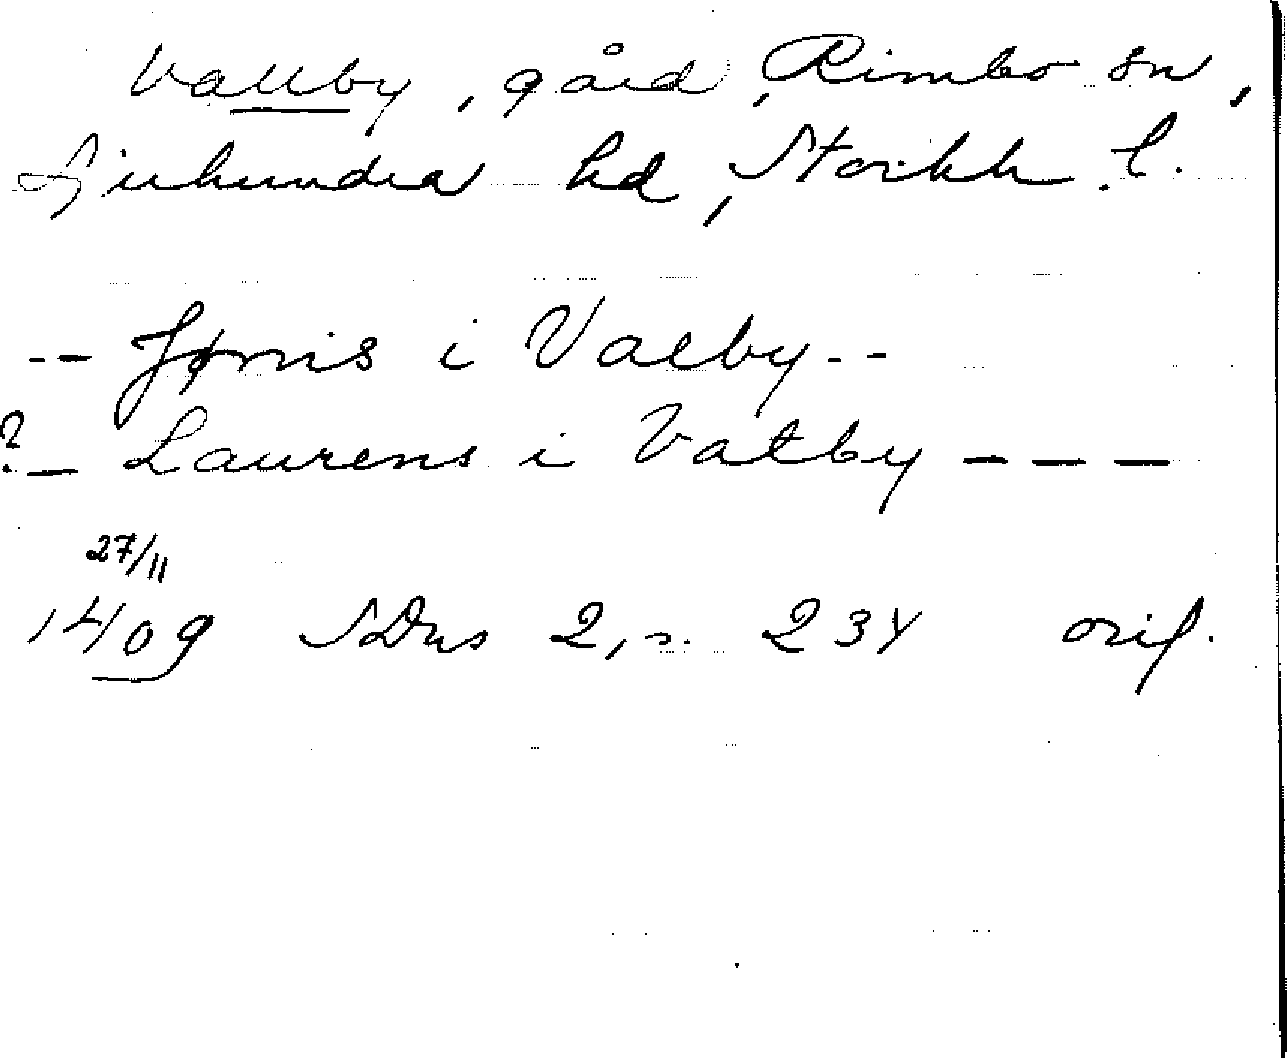 Vallby, gård, Rimbo sn,
Sjuhundra hd, Stockh. l.
-- Jønis i Valby --
?- Laurens i Vatby ---
27/11
1409 SDns 2, s. 234 orig.